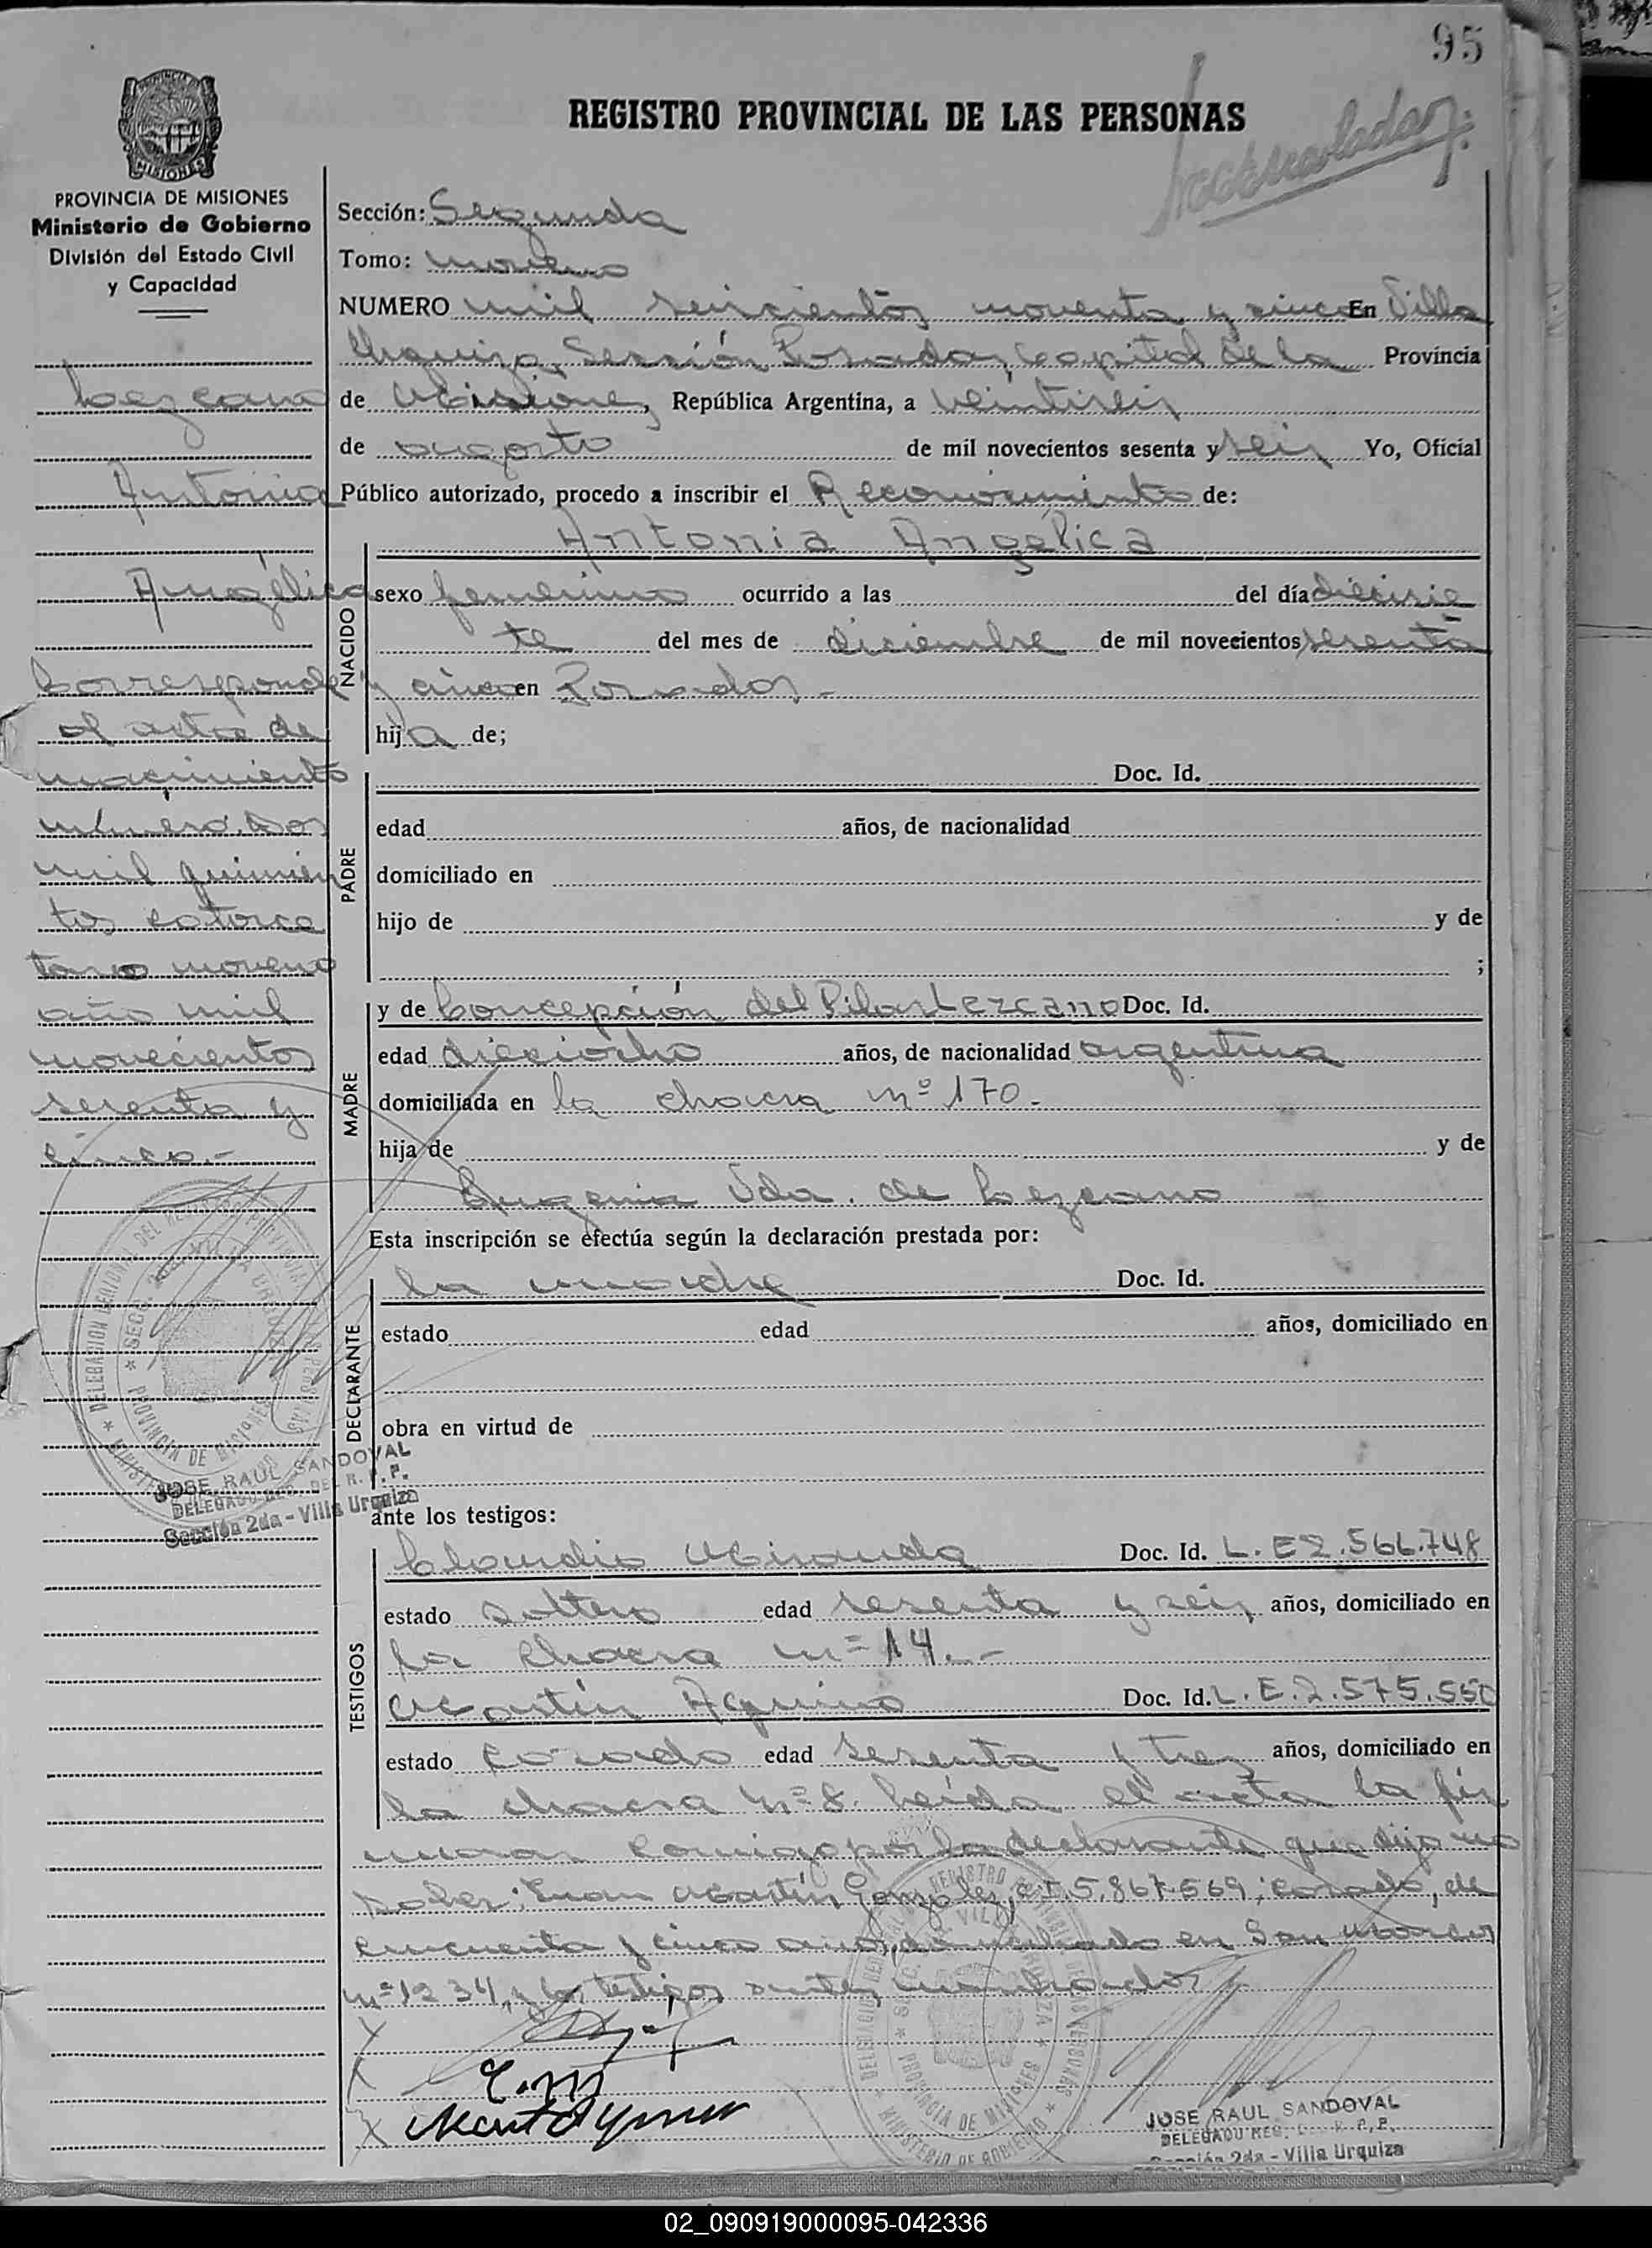 95
REGISTRO PROVINCIAL DE LAS PERSONAS
MISIONES
PROVINCIA DE MISIONES
Ministerio de Gobierno
División del Estado Civil
y Capacidad
Lezcano
Antonia
Angélica
Corresponde
al acta de
nacimiento
número dos
mil quinien
tos catorce
tomo noveno
año mil
novecientos
sesenta y
cinco.-
JOSE RAUL SANDOVAL
DELEGADO REG. DEL R. P. P.
Sección 2da - Villa Urquiza
Sección: Segunda
Tomo: noveno
NUMERO mil seiscientos noventa y cinco En Villa
Urquiza, Sección Posadas, Capital de la Provincia
de Misiones, República Argentina, a veintiseis
de agosto de mil novecientos sesenta y seis Yo, Oficial
Público autorizado, procedo a inscribir el Reconocimiento de:
Antonia Angélica
NACIDO
sexo femenino ocurrido a las del día diecisie
te del mes de diciembre de mil novecientos sesenta
y cinco en Posadas.-
hija de;
PADRE
Doc. Id.
edad años, de nacionalidad
domiciliado en
hijo de y de
;
MADRE
y de Concepción del Pilar Lezcano Doc. Id.
edad dieciocho años, de nacionalidad argentina
domiciliada en la chacra nº 170.-
hija de y de
Eugenia Vda. de Lezcano
Esta inscripción se efectúa según la declaración prestada por:
DECLARANTE
la madre Doc. Id.
estado edad años, domiciliado en
obra en virtud de
ante los testigos:
TESTIGOS
Claudio Miranda Doc. Id. L. E 2.566.748
estado soltero edad sesenta y seis años, domiciliado en
la chacra nº 14.-
Martín Aquino Doc. Id. L. E. 2.575.550
estado casado edad sesenta y tres años, domiciliado en
la chacra nº 8. Leída el acta la fir
man conmigo por la declarante que dijo no
saber: Juan Martín Gonzalez, C.I. 5.867.569, casado, de
cincuenta y cinco años, domiciliado en San Marcos
nº 1234, y los testigos antes nombrados
JOSE RAUL SANDOVAL
DELEGADO REG. DEL R. P. P.
Sección 2da - Villa Urquiza
02_090919000095-042336